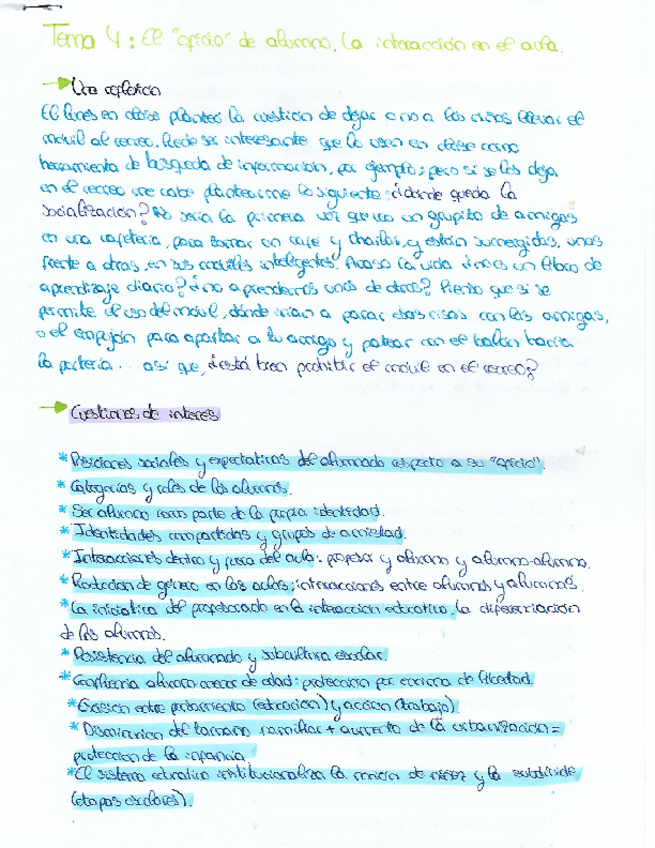 Tema 4: El "oficio" de alumno. La interacción en el aula.
Una reflexión
El lunes en clase planteó la cuestión de dejar o no a los niños llevar el
móvil al recreo. Puede ser interesante que lo usen en clase como
herramienta de búsqueda de información, por ejemplo; pero si se les deja
en el recreo me cabe plantearme lo siguiente: ¿dónde queda la
socialización? No sería la primera vez que veo un grupito de amigas
en una cafetería, para tomar un café y charlar, y están sumergidas, unas
frente a otras, en sus móviles inteligentes. Acaso la vida ¿no es un libro de
aprendizaje diario? ¿no aprendemos unos de otros? Pienso que si se
permite el uso del móvil, dónde irían a parar esas risas con las amigas,
o el empujón para apartar a tu amigo y patear con el balón hacia
la portería... así que, ¿está bien prohibir el móvil en el recreo?
Cuestiones de interés
* Posiciones sociales y expectativas del alumnado respecto a su "oficio".
* Categorías y roles de los alumnos.
* Ser alumno como parte de la propia identidad.
* Identidades compartidas y grupos de amistad.
* Interacciones dentro y fuera del aula: profesor y alumno y alumno-alumno.
* Producción de género en las aulas; interacciones entre alumnos y alumnas.
* La iniciativa del profesorado en la interacción educativa. La diferenciación
de los alumnos.
* Resistencia del alumnado y subcultura escolar.
* alumno menor de edad: protección por encima de libertad.
* Escisión entre pensamiento (educación) y acción (trabajo).
* Disminución del tamaño familiar + aumento de la urbanización =
protección de la infancia.
* El sistema educativo institucionaliza la noción de niñez y la subdivide
(etapas escolares).